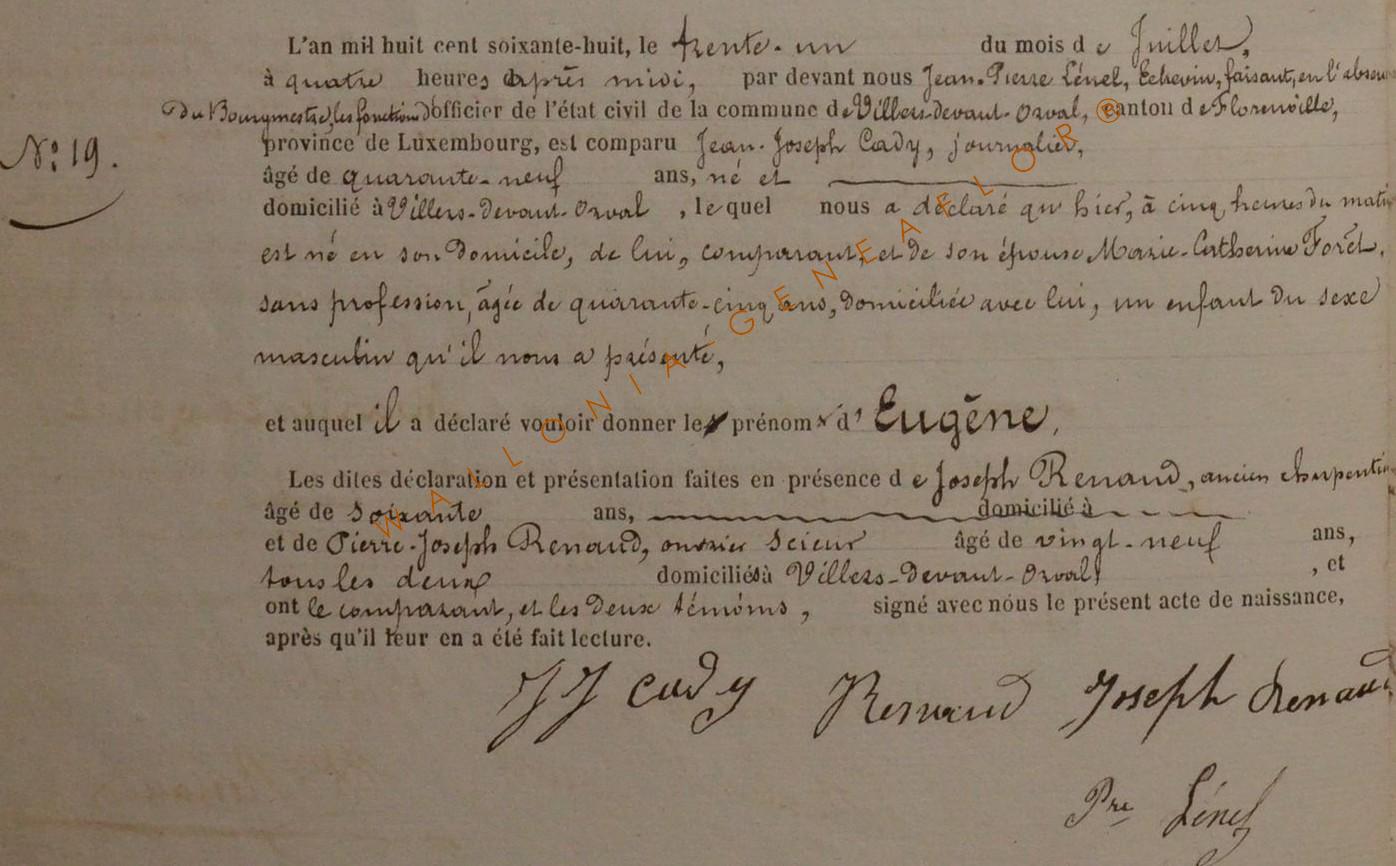 L'an mil huit cent soixante-huit, le trente-un du mois de Juillet,
à quatre heures après midi, par devant nous Jean-Pierre Lénel, Echevin, faisant, en l'absen
du Bourgmestre, les fonctions d'officier de l'état civil de la commune de Villers-devant-Orval, canton de Florenville,
N.° 19.
province de Luxembourg, est comparu Jean-Joseph Cady, journalier,
âgé de quarante-neuf ans, né et
domicilié à Villers-devant-Orval, lequel nous a déclaré qu'hier, à cinq heures du matin
est né en son domicile, de lui, comparant, et de son épouse Marie-Catherine Foret,
sans profession, âgée de quarante-cinq ans, domiciliée avec lui, un enfant du sexe
masculin qu'il nous a présenté,
et auquel il a déclaré vouloir donner le prénom d'Eugène,
Les dites déclaration et présentation faites en présence de Joseph Renaud, ancien charpentier
âgé de soixante ans, domicilié à
et de Pierre-Joseph Renaud, ouvrier scieur âgé de vingt-neuf ans,
tous les deux domiciliés à Villers-devant-Orval, et
ont le comparant, et les deux témoins, signé avec nous le présent acte de naissance,
après qu'il leur en a été fait lecture.
JJ Cady Renaud Joseph Renaud
Pre Lénel
WALLONIA-GENEALOR®